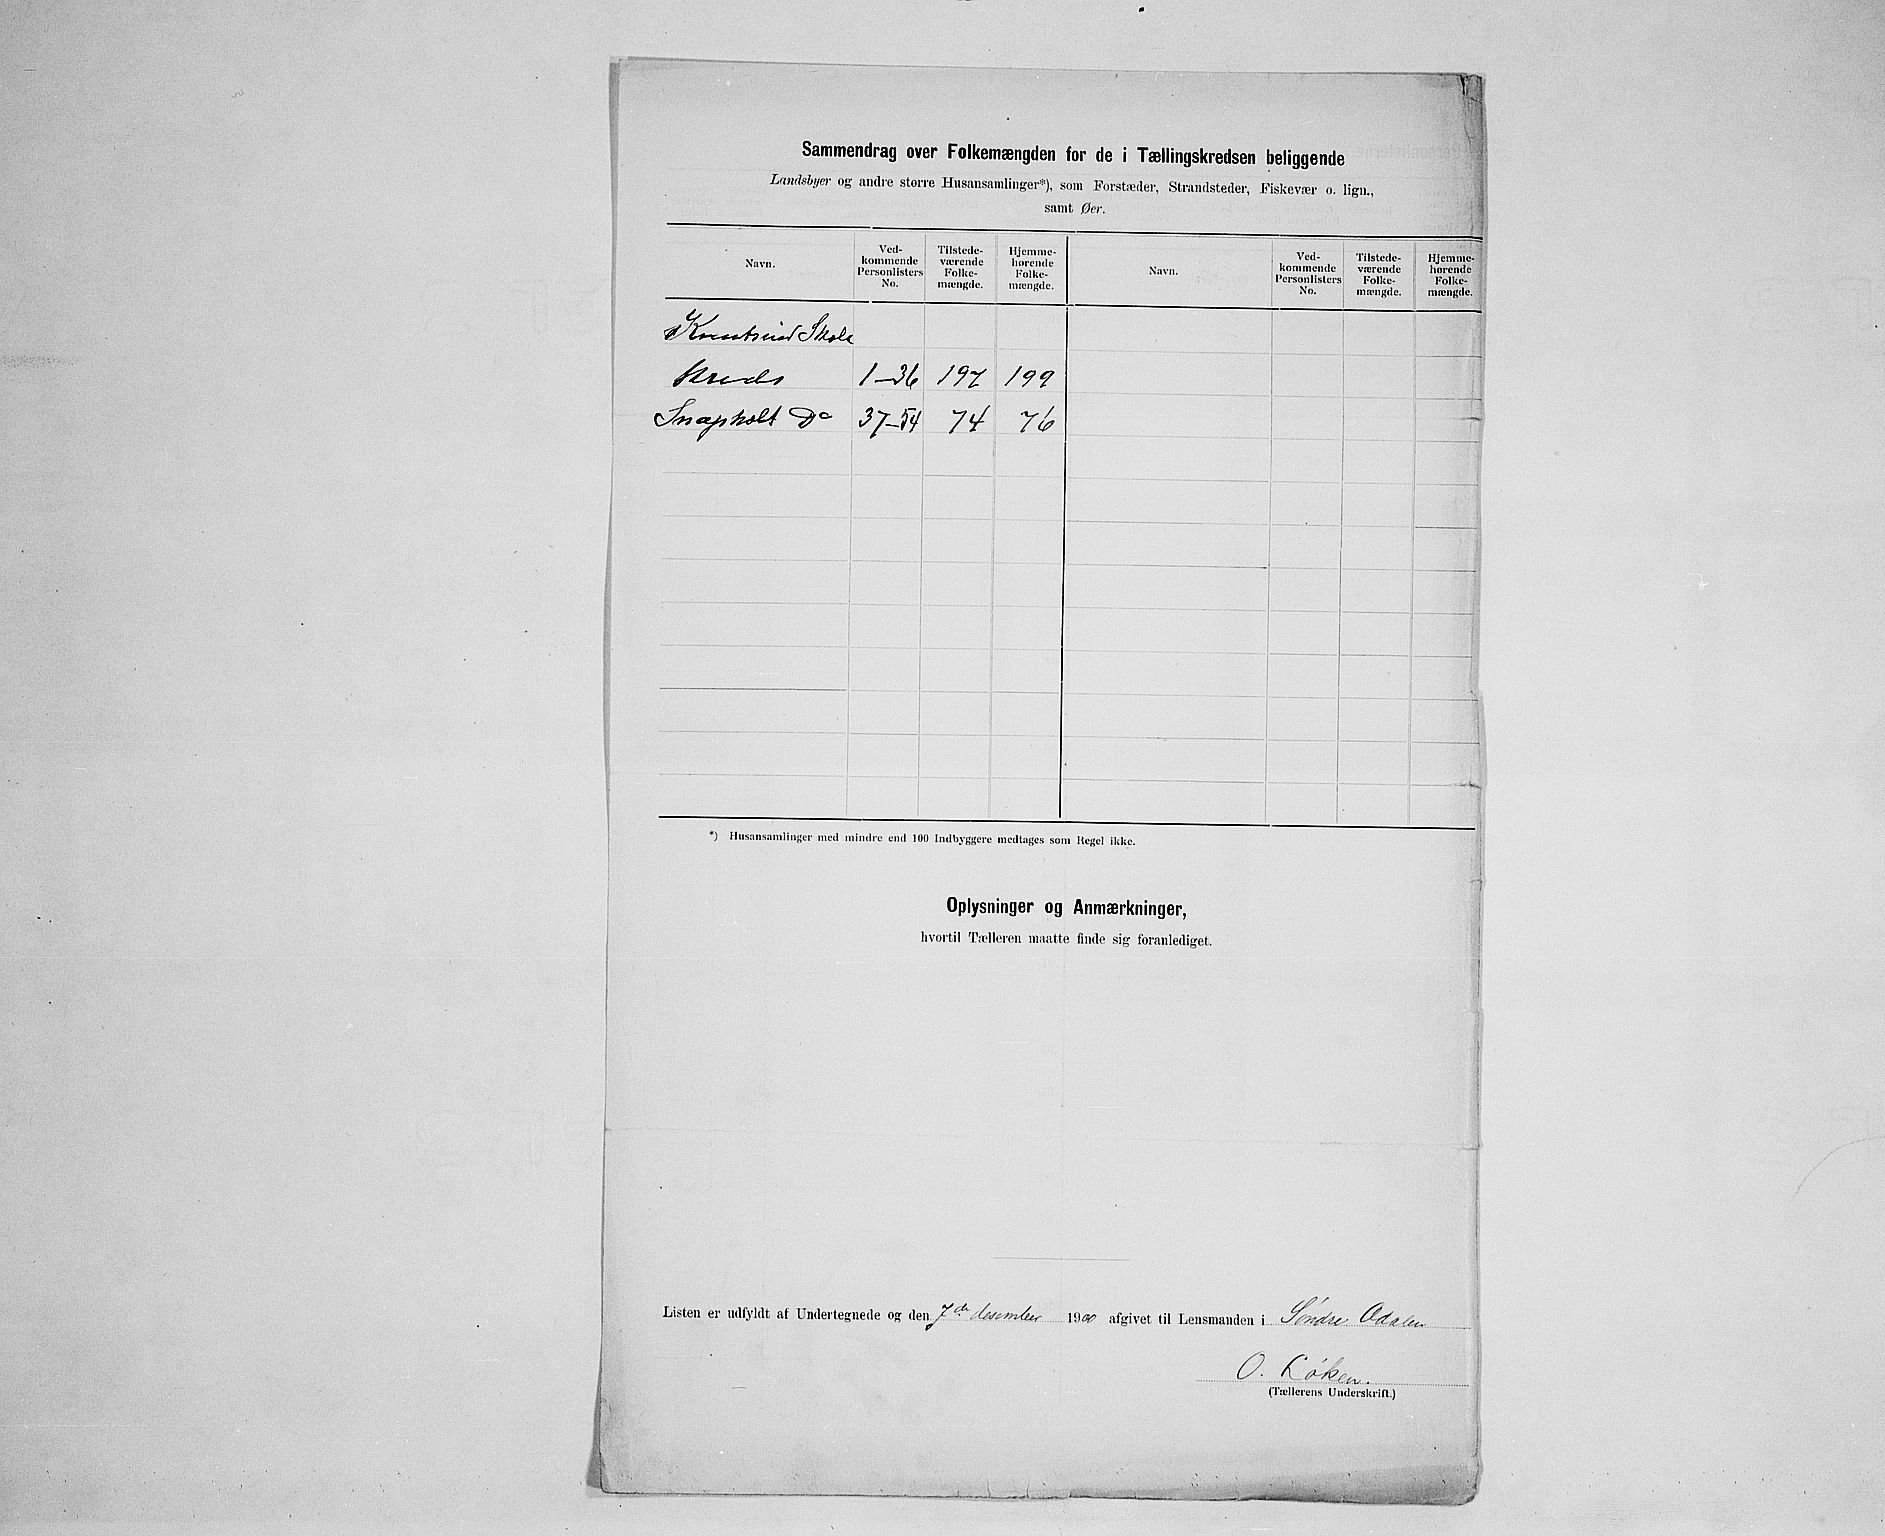 Sammendrag over Folkemængden for de i Tællingskredsen beliggende
Landsbyer og andre større Husansamlinger*), som Forstæder, Strandsteder, Fiskevær o. lign.,
samt Øer.
Navn. Ved-kommende Personlisters No. Tilstede-værende Folke-mængde. Hjemme-hørende Folke-mængde. Navn. Ved-kommende Personlisters No. Tilstede-værende Folke-mængde. Hjemme-hørende Folke-mængde.
Skole
kreds 1-36 197 199
Snapholt Do 37-54 74 76
*) Husansamlinger med mindre end 100 Indbyggere medtages som Regel ikke.
Oplysninger og Anmærkninger,
hvortil Tælleren maatte finde sig foranlediget.
Listen er udfyldt af Undertegnede og den 7de desember 1900 afgivet til Lensmanden i Søndre Odalen
O. Løken.
(Tællerens Underskrift.)